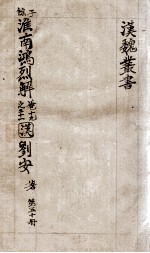 漢魏叢書
子餘
淮南鴻烈解
卷十九
之二十一
漢 劉安 著
第三十冊